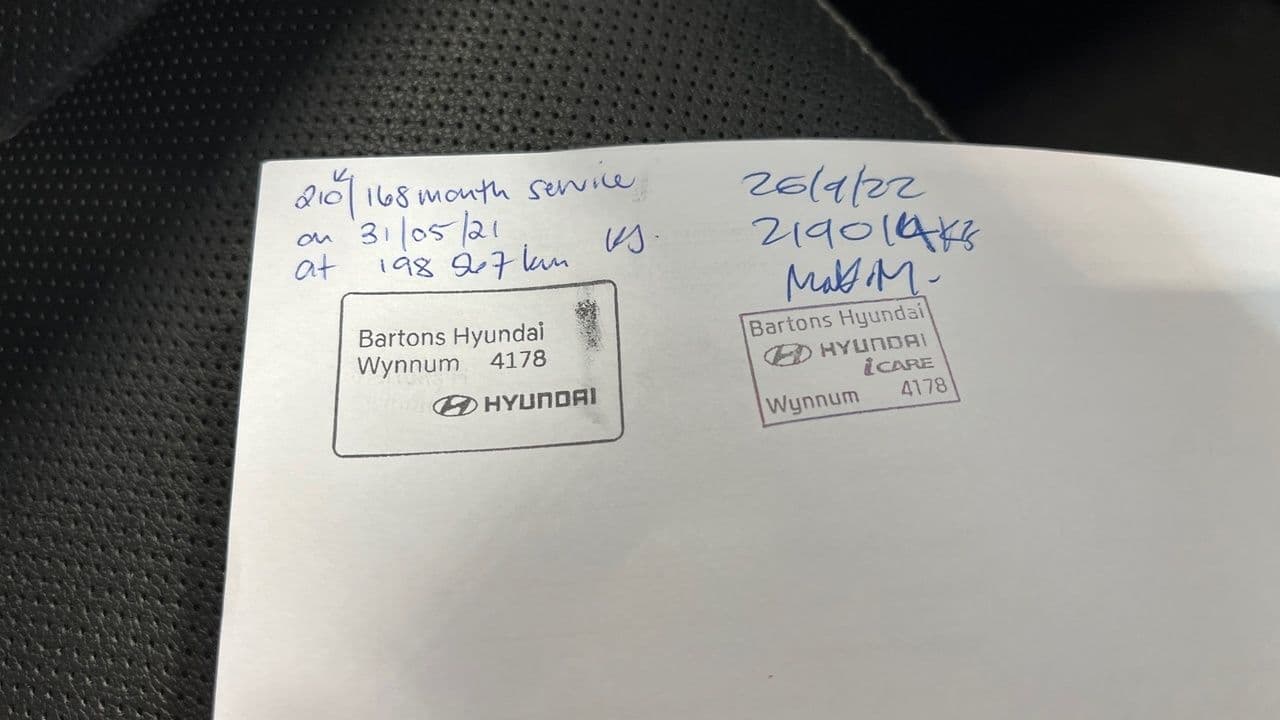 210K/168 month service
on 31/05/21
at 198 567 km KJ.
Bartons Hyundai
Wynnum 4178
HYUNDAI
26/9/22
219014 KS
Bartons Hyundai
HYUNDAI
iCARE
Wynnum 4178